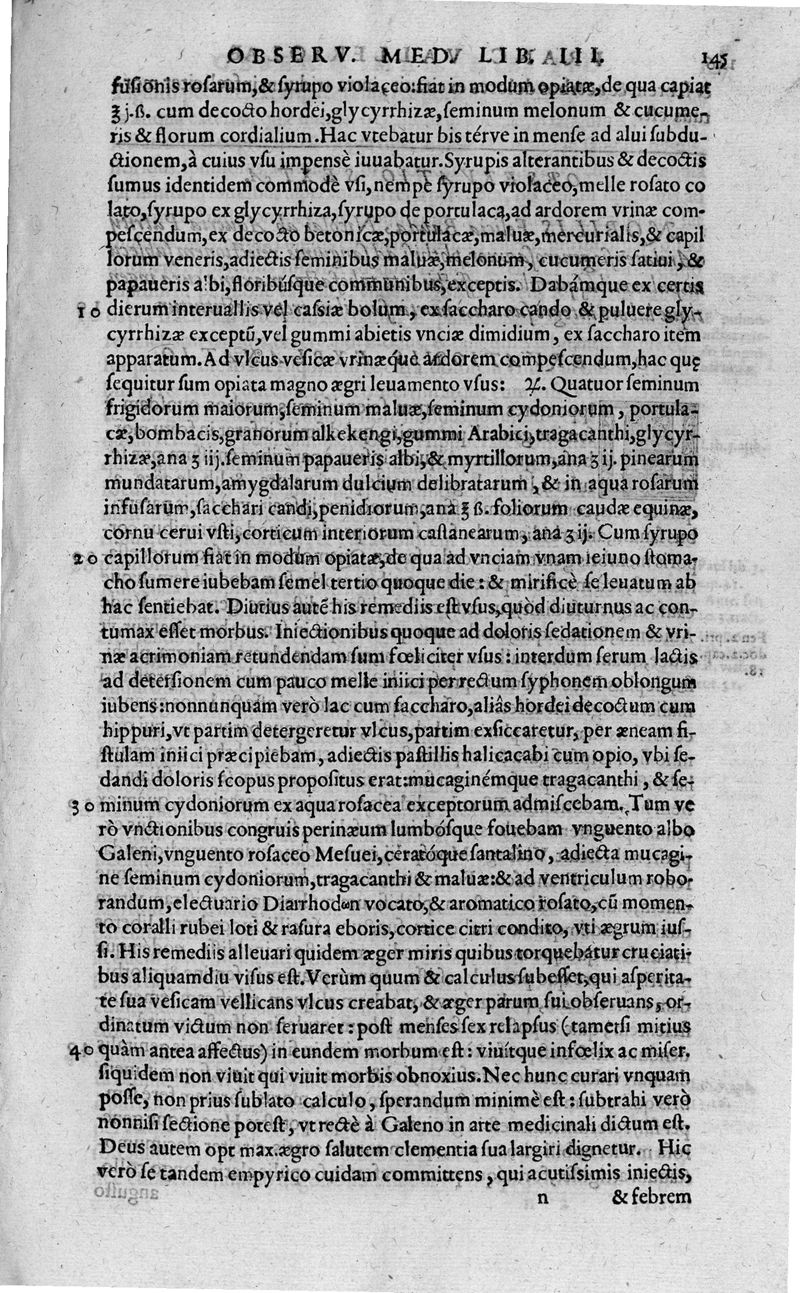 OBSERV. MED. LIB. III. 145
fusionis rosarum, & syrupo violaceo: fiat in modum opiatæ, de qua capiat
℥ j.ß. cum decocto hordei, glycyrrhizæ, seminum melonum & cucume-
ris & florum cordialium. Hac vtebatur bis térve in mense ad alui subdu-
ctionem, à cuius vsu impensè iuuabatur. Syrupis alterantibus & decoctis
sumus identidem commodè vsi, nempè syrupo violaceo, melle rosato co
lato, syrupo ex glycyrrhiza, syrupo de portulaca, ad ardorem vrinæ com-
pescendum, ex decocto betonicæ, portulacæ, maluæ, mercurialis, & capil
lorum veneris, adiectis seminibus maluæ, melonum, cucumeris satiui, &
papaueris albi, floribúsque communibus, exceptis. Dabámque ex certis
10 dierum interuallis vel cassiæ bolum, ex saccharo cando & puluere gly-
cyrrhizæ exceptū, vel gummi abietis vnciæ dimidium, ex saccharo item
apparatum. Ad vlcus vesicæ vrinæque ardorem compescendum, hac quę
sequitur sum opiata magno ægri leuamento vsus: ℞. Quatuor seminum
frigidorum maiorum, seminum maluæ, seminum cydoniorum, portula-
cæ, bombacis, granorum alkekengi, gummi Arabici, tragacanthi, glycyr-
rhizæ, ana ʒ iij. seminum papaueris albi, & myrtillorum, ana ʒ ij. pinearum
mundatarum, amygdalarum dulcium delibratarum, & in aqua rosarum
infusarum, sacchari candi, penidiorum, ana ℥ ß. foliorum caudæ equinæ,
cornu cerui vsti, corticum interiorum castanearum, ana ʒ ij. Cum syrupo
20 capillorum fiat in modum opiatæ, de qua ad vnciam vnam ieiuno stoma-
cho sumere iubebam semel tertio quoque die: & mirificè se leuatum ab
hac sentiebat. Diutius autē his remediis est vsus, quòd diuturnus ac con-
tumax esset morbus. Iniectionibus quoque ad doloris sedationem & vri-
næ acrimoniam retundendam sum fœliciter vsus: interdum serum lactis
ad detersionem cum pauco melle iniici per rectum syphonem oblongum
iubens: nonnunquam verò lac cum saccharo, aliâs hordei decoctum cum
hippuri, vt partim detergeretur vlcus, partim exsiccaretur, per æneam fi-
stulam iniici præcipiebam, adiectis pastillis halicacabi cum opio, vbi se-
dandi doloris scopus propositus erat: mucaginémque tragacanthi, & se-
30 minum cydoniorum ex aqua rosacea exceptorum admiscebam. Tum ve
rò vnctionibus congruis perinæum lumbósque fouebam vnguento albo
Galeni, vnguento rosaceo Mesuei, ceratóque santalino, adiecta mucagi-
ne seminum cydoniorum, tragacanthi & maluæ: & ad ventriculum robo-
randum, electuario Diarrhodon vocato, & aromatico rosato, cū momen-
to coralli rubei loti & rasura eboris, cortice citri condito, vti ægrum ius-
si. His remediis alleuari quidem æger miris quibus torquebatur cruciati-
bus aliquamdiu visus est. Verùm quum & calculus subesset, qui asperita-
te sua vesicam vellicans vlcus creabat, & æger parum sui obseruans, or-
dinatum victum non seruaret: post menses sex relapsus (tametsi mitius
40 quàm antea affectus) in eundem morbum est: viuítque infœlix ac miser.
siquidem non viuit qui viuit morbis obnoxius. Nec hunc curari vnquam
posse, non prius sublato calculo, sperandum minimè est: subtrahi verò
nonnisi sectione potest, vt rectè à Galeno in arte medicinali dictum est.
Deus autem opt max. ægro salutem clementia sua largiri dignetur. Hic
verò se tandem empyrico cuidam committens, qui acutissimis iniectis,
n & febrem